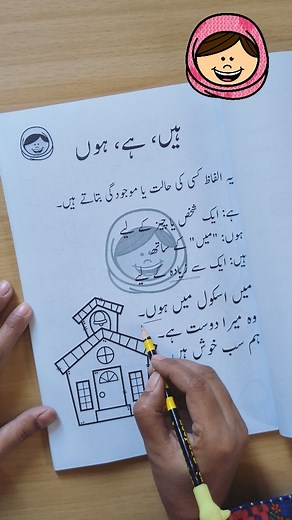 ہیں، ہے، ہوں
یہ الفاظ کسی کی حالت یا موجودگی بتاتے ہیں۔
ہے: ایک شخص یا چیز کے لیے
ہوں: "میں" کے ساتھ
ہیں: ایک سے زیادہ کے لیے
میں اسکول میں ہوں۔
وہ میرا دوست ہے۔
ہم سب خوش ہیں